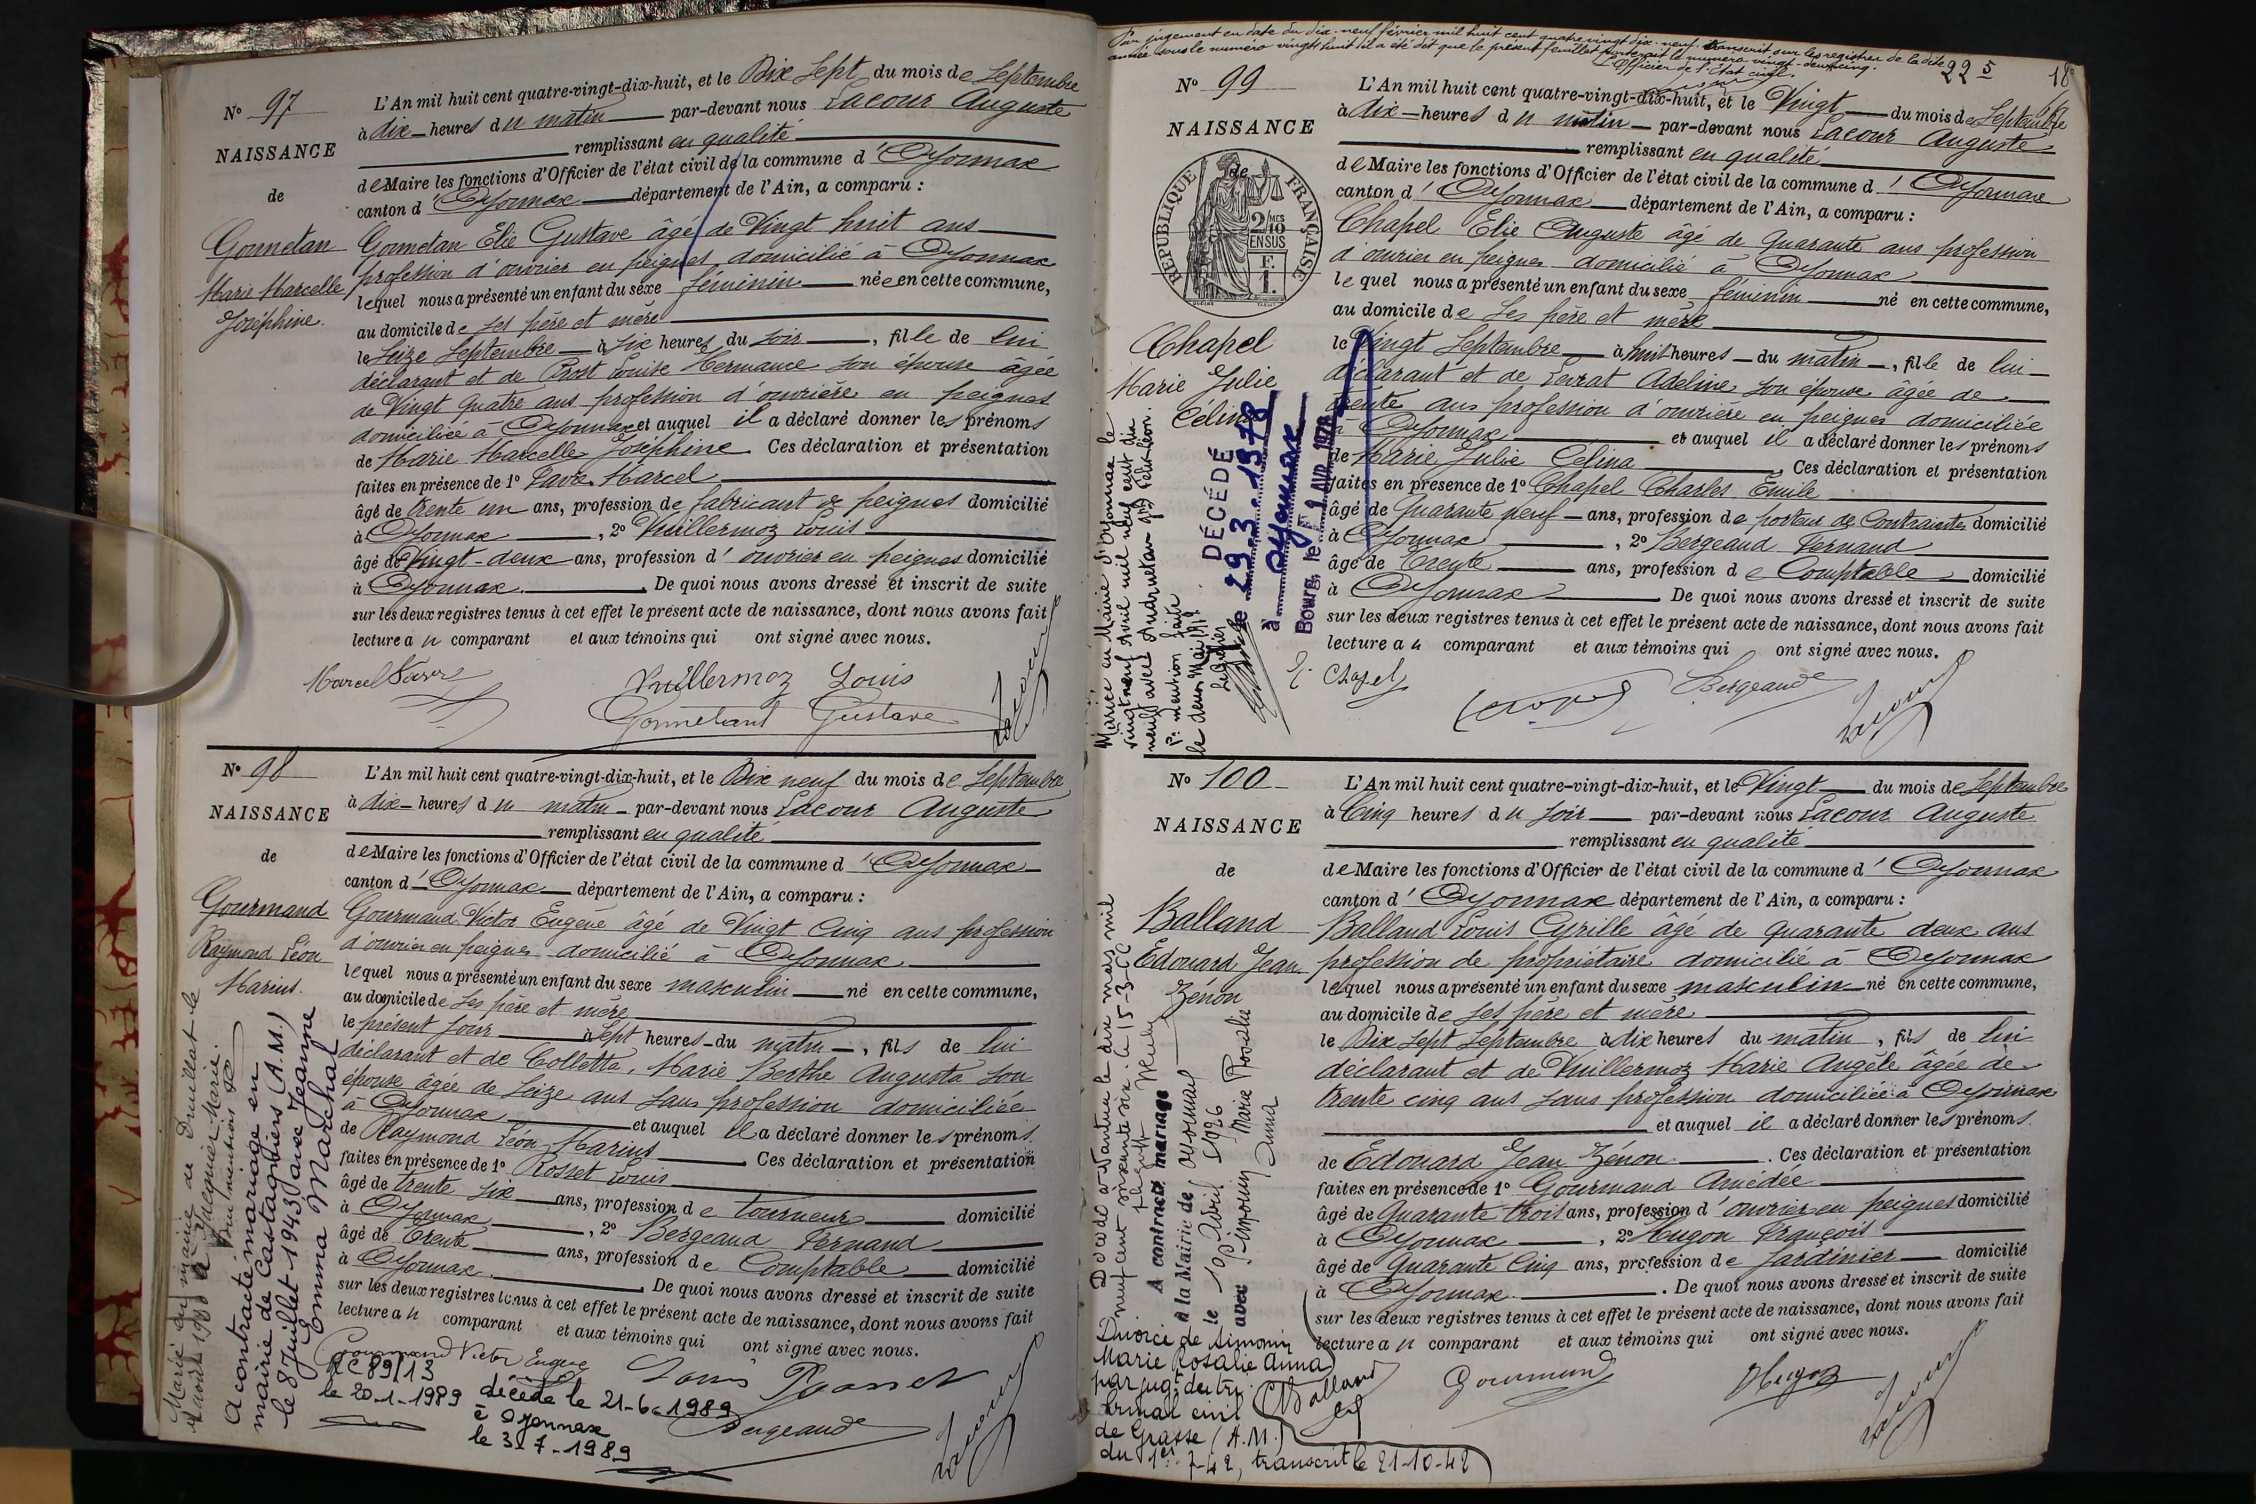 N° 97
NAISSANCE
de
Gonnetan
Marie Marcelle
Joséphine.
L'An mil huit cent quatre-vingt-dix-huit, et le Dix Sept du mois de Septembre
à dix heures du matin par-devant nous Lacour Auguste
remplissant en qualité
de Maire les fonctions d'Officier de l'état civil de la commune d'Oyonnax
canton d'Oyonnax département de l'Ain, a comparu :
Gonnetan Elie Gustave âgé de Vingt huit ans
profession d'ouvrier en peignes domicilié à Oyonnax
lequel nous a présenté un enfant du sexe féminin née en cette commune,
au domicile de ses père et mère
le Seize Septembre à Six heures du soir, fille de lui
déclarant et de Prost Louise Hermance son épouse âgée
de Vingt quatre ans profession d'ouvrière en peignes
domiciliée à Oyonnax et auquel il a déclaré donner les prénoms
de Marie Marcelle Joséphine. Ces déclaration et présentation
faites en présence de 1° Favre Marcel
âgé de trente un ans, profession de fabricant de peignes domicilié
à Oyonnax, 2° Vuillermoz Louis
âgé de Vingt-deux ans, profession d'ouvrier en peignes domicilié
à Oyonnax. De quoi nous avons dressé et inscrit de suite
sur les deux registres tenus à cet effet le présent acte de naissance, dont nous avons fait
lecture au comparant et aux témoins qui ont signé avec nous.
Marcel Favre
Vuillermoz Louis
Gonnetant Gustave
Lacour
N° 98
NAISSANCE
de
Gourmand
Raymond Léon
Marius.
L'An mil huit cent quatre-vingt-dix-huit, et le Dix neuf du mois de Septembre
à dix heures du matin par-devant nous Lacour Auguste
remplissant en qualité
de Maire les fonctions d'Officier de l'état civil de la commune d'Oyonnax
canton d'Oyonnax département de l'Ain, a comparu :
Gourmand Victor Eugène âgé de Vingt Cinq ans profession
d'ouvrier en peignes domicilié à Oyonnax
lequel nous a présenté un enfant du sexe masculin né en cette commune,
au domicile de ses père et mère
le présent jour à Sept heures du matin, fils de lui
déclarant et de Colletta, Marie Berthe Augusta son
épouse âgée de Seize ans sans profession domiciliée
à Oyonnax et auquel il a déclaré donner les prénoms
de Raymond Léon Marius. Ces déclaration et présentation
faites en présence de 1° Rosset Louis
âgé de trente six ans, profession de tourneur domicilié
à Oyonnax, 2° Bergeaud Fernand
âgé de Trente ans, profession de Comptable domicilié
à Oyonnax. De quoi nous avons dressé et inscrit de suite
sur les deux registres tenus à cet effet le présent acte de naissance, dont nous avons fait
lecture au comparant et aux témoins qui ont signé avec nous.
Gourmand Victor Eugène
Louis Rosset
Bergeaud
Lacour
Marié en mairie de Druillat le
Jacquier Marie.
Pour mention
A contracté mariage en
mairie de Castagniers (A.M.)
le 8 Juillet 1943 avec Jeanne
Emma Marchal
RC 89/13
le 20-1-1989 décédé le 21-6-1989
à Oyonnax
le 3-7-1989
Par jugement en date du dix-neuf février mil huit cent quatre vingt dix-neuf transcrit sur les registres de la dite
année sous le numéro vingt huit il a été dit que le présent feuillet porterait le numéro vingt-deux cinq.
L'Officier de l'état civil.
22 5
18
N° 99
NAISSANCE
de
RÉPUBLIQUE FRANÇAISE
2/10 MES
EN SUS
F.
1.
Chapel
Marie Julie
Célina
L'An mil huit cent quatre-vingt-dix-huit, et le Vingt du mois de Septembre
à dix heures du matin par-devant nous Lacour Auguste
remplissant en qualité
de Maire les fonctions d'Officier de l'état civil de la commune d'Oyonnax
canton d'Oyonnax département de l'Ain, a comparu :
Chapel Elie Auguste âgé de quarante ans profession
d'ouvrier en peignes domicilié à Oyonnax
lequel nous a présenté un enfant du sexe féminin né en cette commune,
au domicile de ses père et mère
le Vingt Septembre à huit heures du matin, fille de lui
déclarant et de Levrat Adeline son épouse âgée de
trente ans profession d'ouvrière en peignes domiciliée
à Oyonnax et auquel il a déclaré donner les prénoms
de Marie Julie Célina. Ces déclaration et présentation
faites en présence de 1° Chapel Charles Emile
âgé de Quarante neuf ans, profession de porteur de Contraintes domicilié
à Oyonnax, 2° Bergeaud Fernand
âgé de Trente ans, profession de Comptable domicilié
à Oyonnax. De quoi nous avons dressé et inscrit de suite
sur les deux registres tenus à cet effet le présent acte de naissance, dont nous avons fait
lecture au comparant et aux témoins qui ont signé avec nous.
E. Chapel
Bergeaud
Lacour
Mariée en Mairie d'Oyonnax le
vingt neuf Avril mil neuf cent dix
neuf avec Andruetan Félix Léon.
Pr mention faite
le deux Mai 1919
Le Greffier
DÉCÉDÉ
le 29-3-1978
à Oyonnax
Bourg, le AVR. 1978
N° 100
NAISSANCE
de
Balland
Edouard Jean
Zénon
L'An mil huit cent quatre-vingt-dix-huit, et le Vingt du mois de Septembre
à Cinq heures du soir par-devant nous Lacour Auguste
remplissant en qualité
de Maire les fonctions d'Officier de l'état civil de la commune d'Oyonnax
canton d'Oyonnax département de l'Ain, a comparu :
Balland Louis Cyrille âgé de quarante deux ans
profession de propriétaire domicilié à Oyonnax
lequel nous a présenté un enfant du sexe masculin né en cette commune,
au domicile de ses père et mère
le Dix Sept Septembre à dix heures du matin, fils de lui
déclarant et de Vuillermoz Marie Angèle âgée de
trente cinq ans sans profession domiciliée à Oyonnax
et auquel il a déclaré donner les prénoms
de Edouard Jean Zénon. Ces déclaration et présentation
faites en présence de 1° Gourmand Amédée
âgé de Quarante trois ans, profession d'ouvrier en peignes domicilié
à Oyonnax, 2° Hugon François
âgé de Quarante Cinq ans, profession de Jardinier domicilié
à Oyonnax. De quoi nous avons dressé et inscrit de suite
sur les deux registres tenus à cet effet le présent acte de naissance, dont nous avons fait
lecture au comparant et aux témoins qui ont signé avec nous.
C Balland
Gourmand
Hugon
Lacour
Décédé à Nantua le dix mars mil
neuf cent soixante six. le 15-3-66
A contracté mariage
à la Mairie de Oyonnax
le 10 Avril 1926
avec Simonin Marie Rosalie
Anna
Divorcé de Simonin
Marie Rosalie Anna
par jugt du tri-
bunal civil
de Grasse (A.M.)
du 1er-7-42, transcrit le 21-10-42